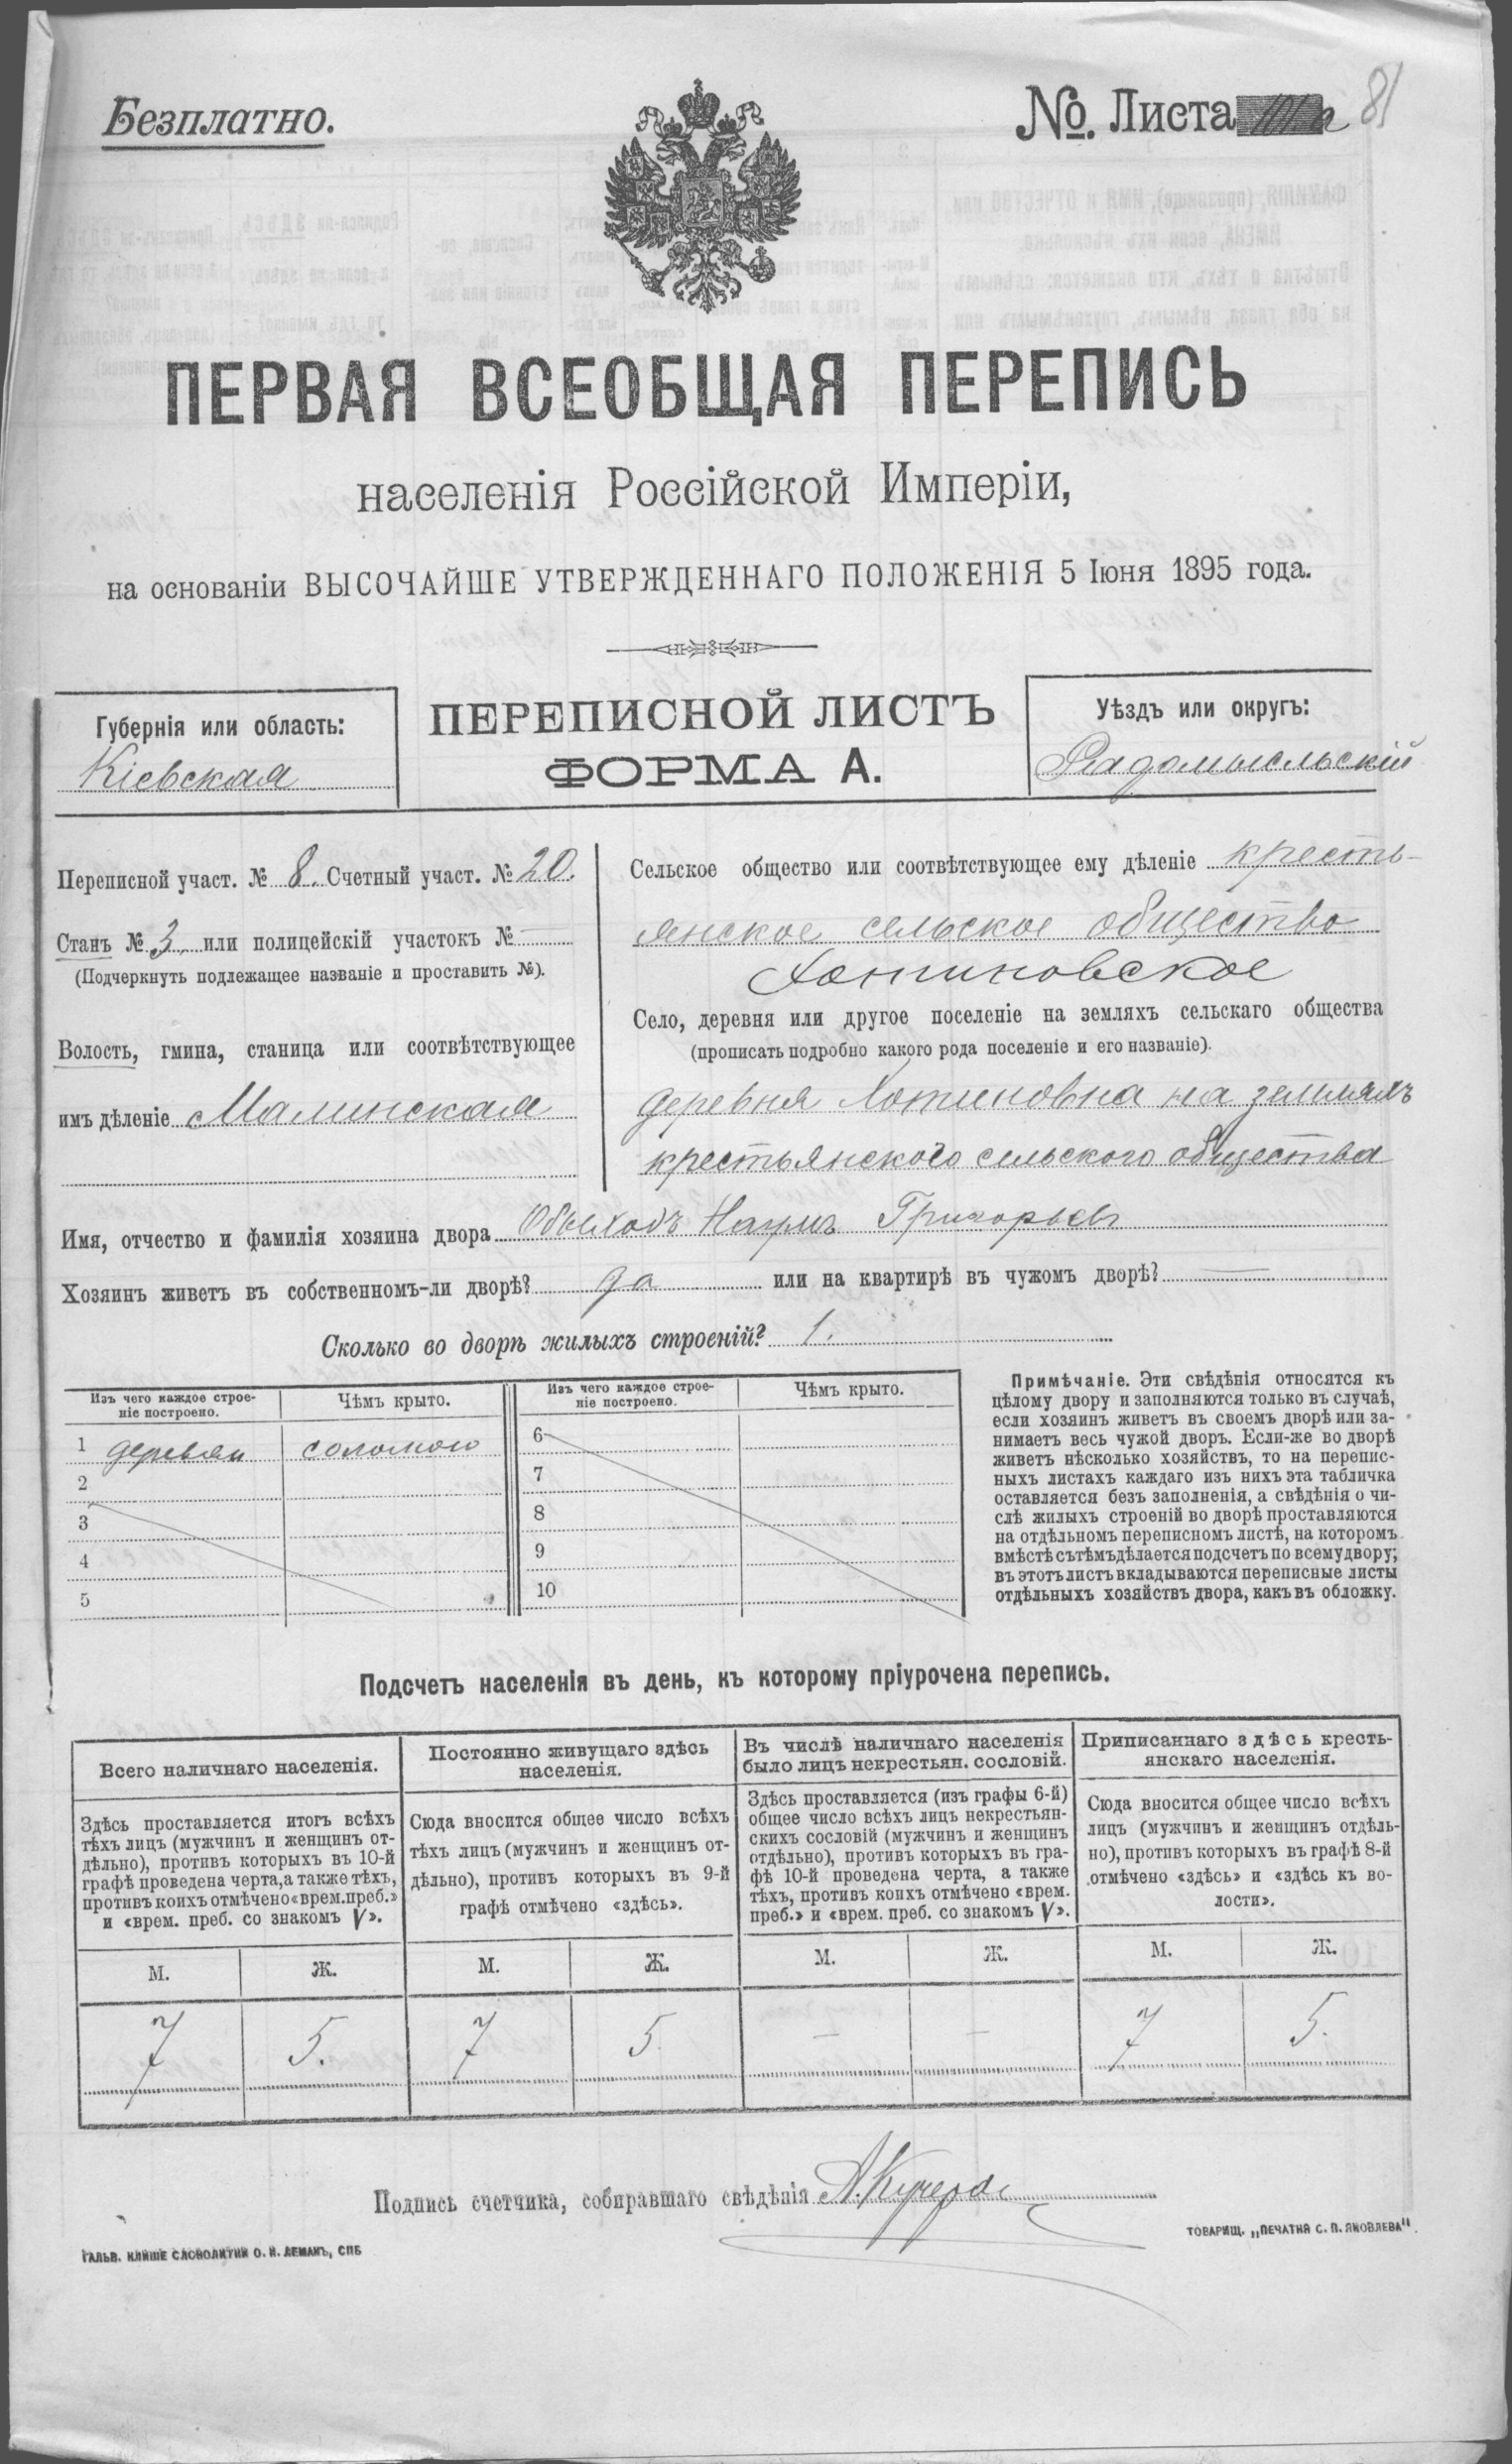 Безплатно.
№. Листа 81
ПЕРВАЯ ВСЕОБЩАЯ ПЕРЕПИСЬ
населенія Россійской Имперіи,
на основаніи ВЫСОЧАЙШЕ УТВЕРЖДЕННАГО ПОЛОЖЕНІЯ 5 Іюня 1895 года.
Губернія или область:
Кіевская
ПЕРЕПИСНОЙ ЛИСТЪ
ФОРМА А.
Уѣздъ или округъ:
Радомысльскій
Переписной участ. № 8. Счетный участ. № 20.
Станъ № 3, или полицейскій участокъ № —
(Подчеркнуть подлежащее названіе и проставить №).
Волость, гмина, станица или соотвѣтствующее
имъ дѣленіе Малинская
Сельское общество или соотвѣтствующее ему дѣленіе кресть-
янское сельское общество
Хотиновское
Село, деревня или другое поселеніе на земляхъ сельскаго общества
(прописать подробно какого рода поселеніе и его названіе).
деревня Хотиновка на земляхъ
крестьянского сельского общества
Имя, отчество и фамилія хозяина двора Обыходъ Наумъ Григорьевъ
Хозяинъ живетъ въ собственномъ-ли дворѣ? да или на квартирѣ въ чужомъ дворѣ? —
Сколько во дворѣ жилыхъ строеній? 1.
Изъ чего каждое строе-
ніе построено.
Чѣмъ крыто.
1 деревян соломою
2
3
4
5
Изъ чего каждое строе-
ніе построено.
Чѣмъ крыто.
6
7
8
9
10
Примѣчаніе. Эти свѣдѣнія относятся къ
цѣлому двору и заполняются только въ случаѣ,
если хозяинъ живетъ въ своемъ дворѣ или за-
нимаетъ весь чужой дворъ. Если-же во дворѣ
живетъ нѣсколько хозяйствъ, то на перепис-
ныхъ листахъ каждаго изъ нихъ эта табличка
оставляется безъ заполненія, а свѣдѣнія о чи-
слѣ жилыхъ строеній во дворѣ проставляются
на отдѣльномъ переписномъ листѣ, на которомъ
вмѣстѣ съ тѣмъ дѣлается подсчетъ по всему двору;
въ этотъ листъ вкладываются переписные листы
отдѣльныхъ хозяйствъ двора, какъ въ обложку.
Подсчетъ населенія въ день, къ которому пріурочена перепись.
Всего наличнаго населенія.
Здѣсь проставляется итогъ всѣхъ
тѣхъ лицъ (мужчинъ и женщинъ от-
дѣльно), противъ которыхъ въ 10-й
графѣ проведена черта, а также тѣхъ,
противъ коихъ отмѣчено «врем. преб.»
и «врем. преб. со знакомъ V».
М. Ж.
7 5.
Постоянно живущаго здѣсь
населенія.
Сюда вносится общее число всѣхъ
тѣхъ лицъ (мужчинъ и женщинъ от-
дѣльно), противъ которыхъ въ 9-й
графѣ отмѣчено «здѣсь».
М. Ж.
7 5
Въ числѣ наличнаго населенія
было лицъ некрестьян. сословій.
Здѣсь проставляется (изъ графы 6-й)
общее число всѣхъ лицъ некрестьян-
скихъ сословій (мужчинъ и женщинъ
отдѣльно), противъ которыхъ въ гра-
фѣ 10-й проведена черта, а также
тѣхъ, противъ коихъ отмѣчено «врем.
преб.» и «врем. преб. со знакомъ V».
М. Ж.
— —
Приписаннаго здѣсь кресть-
янскаго населенія.
Сюда вносится общее число всѣхъ
лицъ (мужчинъ и женщинъ отдѣль-
но), противъ которыхъ въ графѣ 8-й
отмѣчено «здѣсь» и «здѣсь къ во-
лости».
М. Ж.
7 5.
Подпись счетчика, собиравшаго свѣдѣнія А. Кучеров
ГАЛЬВ. КЛИШЕ СЛОВОЛИТНИ О. И. ЛЕМАНЪ, СПБ
ТОВАРИЩ. „ПЕЧАТНЯ С. П. ЯКОВЛЕВА".